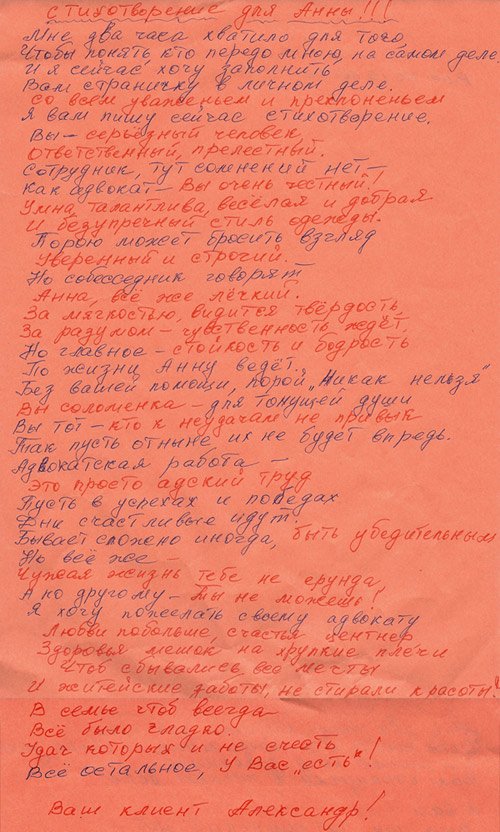 Стихотворение для Анны!!!
Мне два часа хватило для того,
Чтобы понять кто передо мною, на самом деле,
И я сейчас хочу заполнить
Вам страничку в личном деле.
Со всем уваженьем и преклоненьем
Я вам пишу сейчас стихотворение.
Вы – серьёзный человек,
Ответственный, прелестный.
Сотрудник, тут сомнений нет –
Как адвокат – Вы очень честный!
Умна, талантлива, весёлая и добрая
И безупречный стиль одежды.
Порою может бросить взгляд
Уверенный и строгий.
Но собесседник говорят
Анна, всё же лёгкий.
За мягкостью, видится твёрдость,
За разумом – чувственность ждёт,
Но главное – стойкость и бодрость
По жизни Анну ведёт.
Без вашей помощи, порой „Никак нельзя"
Вы соломенка – для тонущей души
Вы тот – кто к неудачам не привык
Так пусть отныне их не будет впредь.
Адвокатская работа –
Это просто адский труд
Пусть в успехах и победах
Дни счастливые идут.
Бывает сложно иногда, быть убедительным
Но всё же –
Чужая жизнь тебе не ерунда,
А по другому – Ты не можешь!
Я хочу пожелать своему адвокату
Любви побольше, счастья центнер
Здоровья мешок на хрупкие плечи
Чтоб сбывались все мечты
И житейские заботы, не стирали красоты!
В семье чтоб всегда
Всё было гладко.
Удач которых и не счесть
Всё остальное, у Вас „есть"!
Ваш клиент Александр!